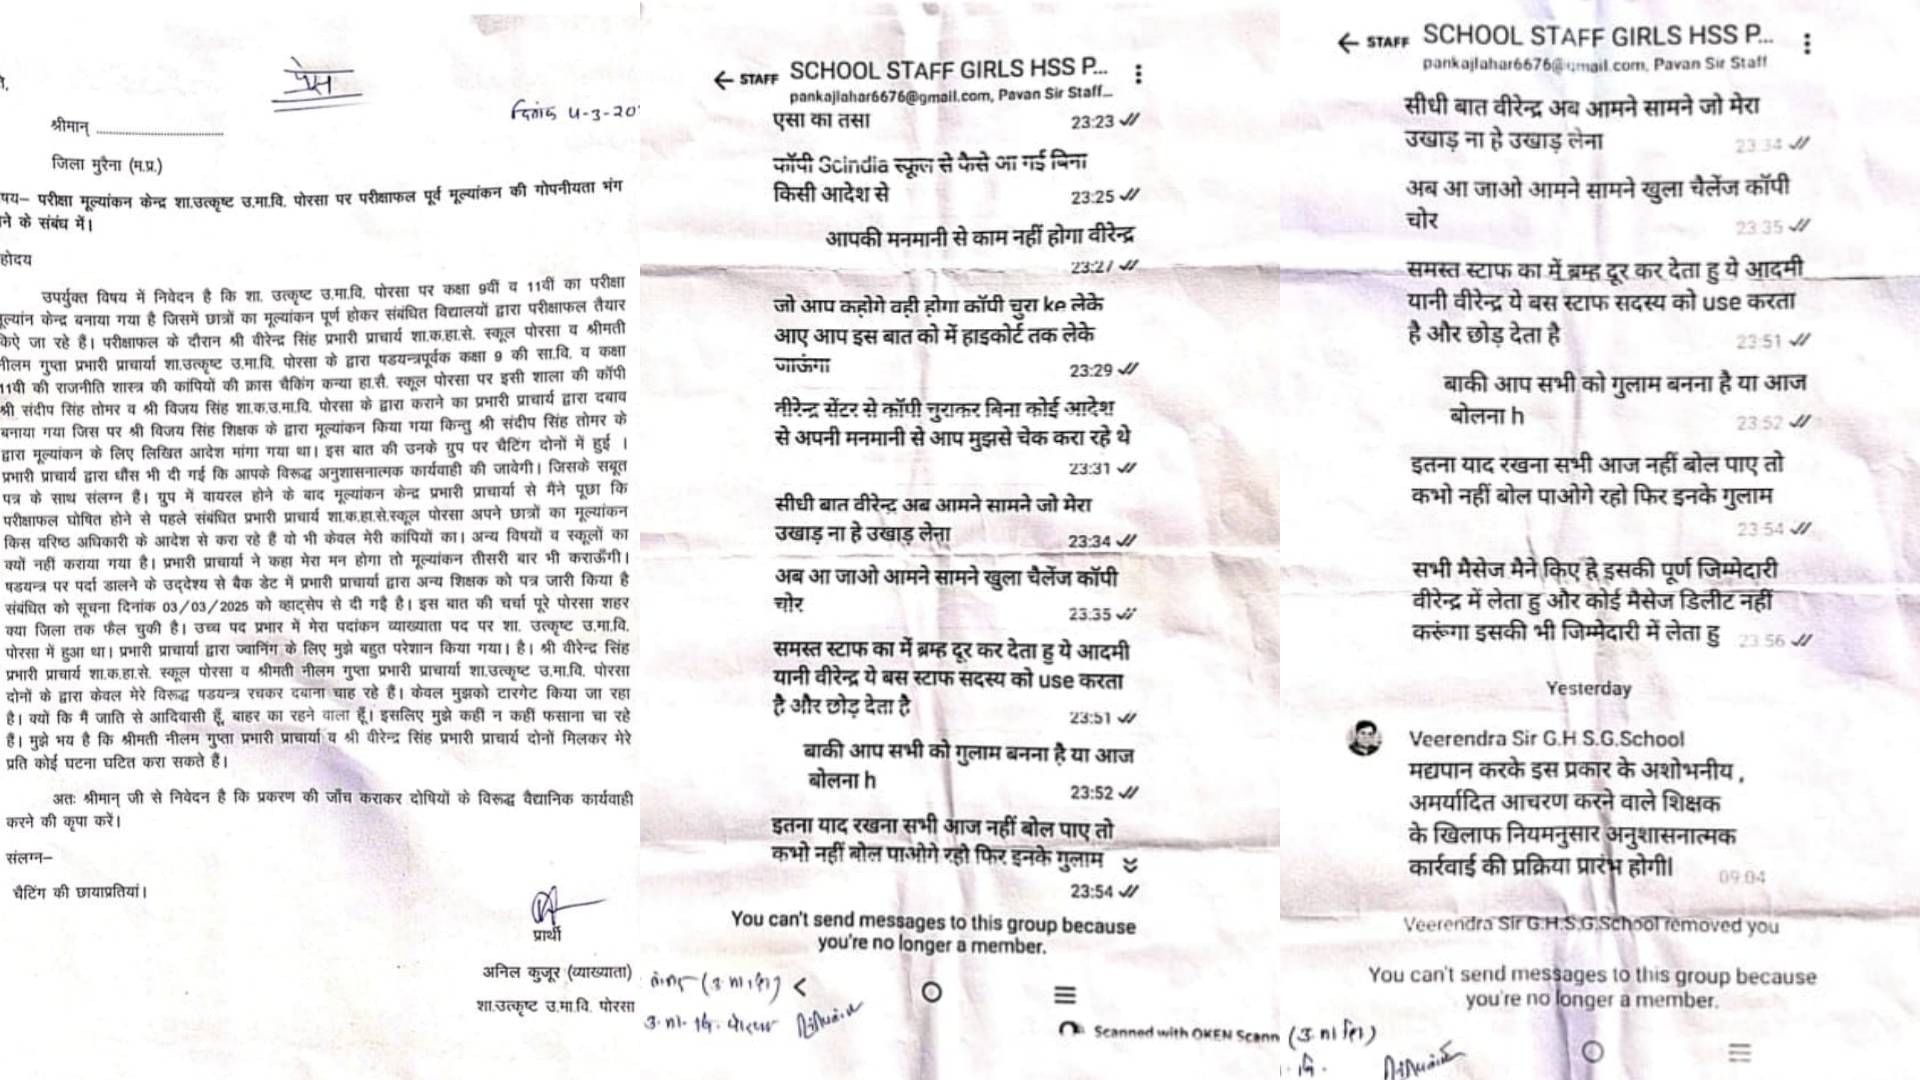 प्रेस
दिनांक 4-3-20
श्रीमान् ....................................
जिला मुरैना (म.प्र.)
षय– परीक्षा मूल्यांकन केन्द्र शा.उत्कृष्ट उ.मा.वि. पोरसा पर परीक्षाफल पूर्व मूल्यांकन की गोपनीयता भंग
ने के संबंध में।
होदय
उपर्युक्त विषय में निवेदन है कि शा. उत्कृष्ट उ.मा.वि. पोरसा पर कक्षा 9वीं व 11वीं का परीक्षा
मूल्यांन केन्द्र बनाया गया है जिसमें छात्रों का मूल्यांकन पूर्ण होकर संबंधित विद्यालयों द्वारा परीक्षाफल तैयार
किऐ जा रहे हैं। परीक्षाफल के दौरान श्री वीरेन्द्र सिंह प्रभारी प्राचार्य शा.क.हा.से. स्कूल पोरसा व श्रीमती
नीलम गुप्ता प्रभारी प्राचार्या शा.उत्कृष्ट उ.मा.वि. पोरसा के द्वारा षडयन्त्रपूर्वक कक्षा 9 की सा.वि. व कक्षा
11वी की राजनीति शास्त्र की कांपियों की क्रास चैकिंग कन्या हा.सै. स्कूल पोरसा पर इसी शाला की कॉपी
श्री संदीप सिंह तोमर व श्री विजय सिंह शा.क.उ.मा.वि. पोरसा के द्वारा कराने का प्रभारी प्राचार्य द्वारा दबाव
बनाया गया जिस पर श्री विजय सिंह शिक्षक के द्वारा मूल्यांकन किया गया किन्तु श्री संदीप सिंह तोमर के
द्वारा मूल्यांकन के लिए लिखित आदेश मांगा गया था। इस बात की उनके ग्रुप पर चैटिंग दोनों में हुई ।
प्रभारी प्राचार्य द्वारा धौंस भी दी गई कि आपके विरूद्ध अनुशासनात्मक कार्यवाही की जावेगी। जिसके सबूत
पत्र के साथ संलग्न हैं। ग्रुप में वायरल होने के बाद मूल्यांकन केन्द्र प्रभारी प्राचार्या से मैंने पूछा कि
परीक्षाफल घोषित होने से पहले संबंधित प्रभारी प्राचार्य शा.क.हा.से.स्कूल पोरसा अपने छात्रों का मूल्यांकन
किस वरिष्ठ अधिकारी के आदेश से करा रहे हैं वो भी केवल मेरी कांपियों का। अन्य विषयों व स्कूलों का
क्यों नहीं कराया गया है। प्रभारी प्राचार्या ने कहा मेरा मन होगा तो मूल्यांकन तीसरी बार भी कराऊँगी।
षडयन्त्र पर पर्दा डालने के उद्देश्य से बैक डेट में प्रभारी प्राचार्या द्वारा अन्य शिक्षक को पत्र जारी किया है
संबंधित को सूचना दिनांक 03/03/2025 को व्हाट्सेप से दी गई है। इस बात की चर्चा पूरे पोरसा शहर
क्या जिला तक फैल चुकी है। उच्च पद प्रभार में मेरा पदांकन व्याख्याता पद पर शा. उत्कृष्ट उ.मा.वि.
पोरसा में हुआ था। प्रभारी प्राचार्या द्वारा ज्वानिंग के लिए मुझे बहुत परेशान किया गया। है। श्री वीरेन्द्र सिंह
प्रभारी प्राचार्य शा.क.हा.से. स्कूल पोरसा व श्रीमती नीलम गुप्ता प्रभारी प्राचार्या शा.उत्कृष्ट उ.मा.वि. पोरसा
दोनों के द्वारा केवल मेरे विरूद्ध षडयन्त्र रचकर दबाना चाह रहे हैं। केवल मुझको टारगेट किया जा रहा
है। क्यों कि मैं जाति से आदिवासी हूँ, बाहर का रहने वाला हूँ। इसलिए मुझे कहीं न कहीं फसाना चा रहे
हैं। मुझे भय है कि श्रीमती नीलम गुप्ता प्रभारी प्राचार्या व श्री वीरेन्द्र सिंह प्रभारी प्राचार्य दोनों मिलकर मेरे
प्रति कोई घटना घटित करा सकते हैं।
अतः श्रीमान् जी से निवेदन है कि प्रकरण की जाँच कराकर दोषियों के विरूद्ध वैद्यानिक कार्यवाही
करने की कृपा करें।
संलग्न–
चैटिंग की छायाप्रतियां।
प्रार्थी
अनिल कुजूर (व्याख्याता)
शा.उत्कृष्ट उ.मा.वि. पोरसा
STAFF SCHOOL STAFF GIRLS HSS P...
pankajlahar6676@gmail.com, Pavan Sir Staff...
एसा का तसा
23:23
कॉपी Scindia स्कूल से कैसे आ गई बिना
किसी आदेश से
23:25
आपकी मनमानी से काम नहीं होगा वीरेन्द्र
23:27
जो आप कहोगे वही होगा कॉपी चुरा ke लेके
आए आप इस बात को में हाइकोर्ट तक लेके
जाऊंगा
23:29
वीरेन्द्र सेंटर से कॉपी चुराकर बिना कोई आदेश
से अपनी मनमानी से आप मुझसे चेक करा रहे थे
23:31
सीधी बात वीरेन्द्र अब आमने सामने जो मेरा
उखाड़ ना हे उखाड़ लेना
23:34
अब आ जाओ आमने सामने खुला चैलेंज कॉपी
चोर
23:35
समस्त स्टाफ का में ब्रम्ह दूर कर देता हु ये आदमी
यानी वीरेन्द्र ये बस स्टाफ सदस्य को use करता
है और छोड़ देता है
23:51
बाकी आप सभी को गुलाम बनना है या आज
बोलना h
23:52
इतना याद रखना सभी आज नहीं बोल पाए तो
कभो नहीं बोल पाओगे रहो फिर इनके गुलाम
23:54
You can't send messages to this group because
you're no longer a member.
(उ.मा.शि)
Scanned with OKEN Scann
STAFF SCHOOL STAFF GIRLS HSS P...
pankajlahar6676@gmail.com, Pavan Sir Staff
सीधी बात वीरेन्द्र अब आमने सामने जो मेरा
उखाड़ ना हे उखाड़ लेना
23:34
अब आ जाओ आमने सामने खुला चैलेंज कॉपी
चोर
23:35
समस्त स्टाफ का में ब्रम्ह दूर कर देता हु ये आदमी
यानी वीरेन्द्र ये बस स्टाफ सदस्य को use करता
है और छोड़ देता है
23:51
बाकी आप सभी को गुलाम बनना है या आज
बोलना h
23:52
इतना याद रखना सभी आज नहीं बोल पाए तो
कभो नहीं बोल पाओगे रहो फिर इनके गुलाम
23:54
सभी मैसेज मैने किए हे इसकी पूर्ण जिम्मेदारी
वीरेन्द्र में लेता हु और कोई मैसेज डिलीट नहीं
करूंगा इसकी भी जिम्मेदारी में लेता हु
23:56
Yesterday
Veerendra Sir G.H S.G.School
मद्यपान करके इस प्रकार के अशोभनीय ,
अमर्यादित आचरण करने वाले शिक्षक
के खिलाफ नियमनुसार अनुशासनात्मक
कार्रवाई की प्रक्रिया प्रारंभ होगी।
09:04
Veerendra Sir G.H.S.G.School removed you
You can't send messages to this group because
you're no longer a member.
(उ.मा.शि)